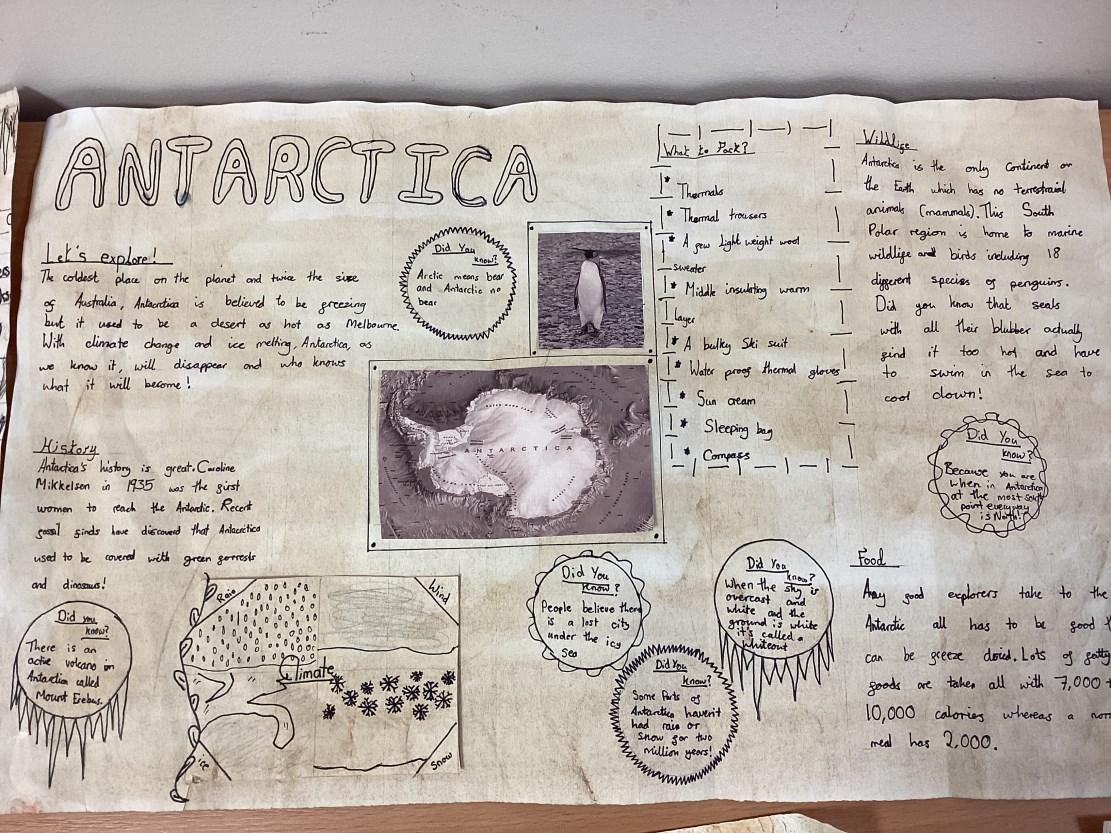 ANTARCTICA
Let's explore!
The coldest place on the planet and twice the size
of Australia, Antarctica is believed to be freezing
but it used to be a desert as hot as Melbourne.
With climate change and ice melting, Antarctica, as
we know it, will disappear and who knows
what it will become!
Did You
know?
Arctic means bear
and Antarctic no
bear
History
Antactica's history is great. Caroline
Mikkelson in 1935 was the first
women to reach the Antardic. Recent
fossil finds have discoverd that Antarctica
used to be covered with green forrests
and dinosaurs!
Did you
know?
There is an
active volcano in
Antarctica called
Mount Erebus.
Rain
Wind
Climate
ice
Snow
ANTARCTICA
What to Pack?
* Thermals
* Thermal trousers
* A few light weight wool
sweater
* Middle insulating warm
layer
* A bulky Ski suit
* Water proof thermal gloves
* Sun cream
* Sleeping bag
* Compass
Did You
know?
People believe there
is a lost city
under the icy
sea
Did You
know?
Some Parts of
Antarctica haven't
had rain or
snow for two
million years!
Did You
know?
When the sky is
overcast and
white and the
ground is white
it's called a
whiteout
Wildlife
Antarctica is the only Continent on
the Earth which has no terrestraial
animals (mammals). This South
Polar region is home to marine
wildlife and birds including 18
different species of penguins.
Did you know that seals
with all their blubber actually
find it too hot and have
to swim in the sea to
cool down!
Did You
know?
Because you are
when in Antarctica
at the most south
point everyway
is North!
Food
Any good explorers take to the
Antarctic all has to be good
can be freeze dried. Lots of fatty
foods are taken all with 7,000
10,000 calories whereas a
meal has 2,000.